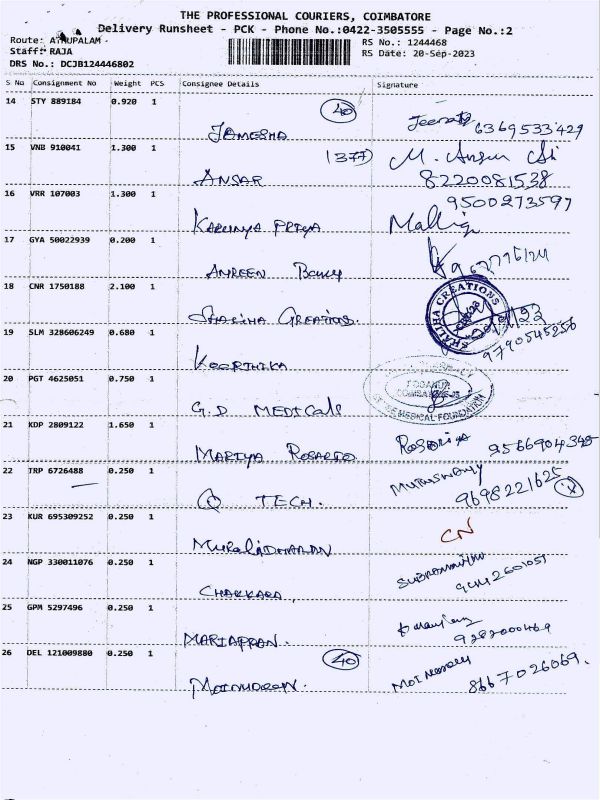 THE PROFESSIONAL COURIERS, COIMBATORE
Delivery Runsheet - PCK - Phone No.:0422-3505555 - Page No.:2
Route: ATHUPALAM
Staff: RAJA
DRS No.: DCJB124446802
RS No.: 1244468
RS Date: 20-Sep-2023
S No Consignment No Weight PCS Consignee Details Signature
14 STY 889184 0.920 1 (40)
JAMESHA 6369533429
15 VNB 910041 1.300 1 (377) M. Ansar Ali
ANSAR 8220081538
16 VRR 107003 1.300 1 9500273597
KARUNYA PRIYA
17 GYA 50022939 0.200 1
AMREEN Banu
18 CNR 1750188 2.100 1
SHALIHA CREATIONS
SHALIHA CREATIONS.
19 SLM 328606249 0.680 1 9790545256
KEERTHIKA
20 PGT 4625051 0.750 1
MEDICAL FOUNDATION
G.D MEDICALS
21 KDP 2809122 1.650 1
MARIYA ROSARIO 9566904345
22 TRP 6726488 0.250 1 Muthuswamy
Q TECH. 9698221625
23 KUR 695309252 0.250 1 CN
MURALIDHARAN
24 NGP 330011076 0.250 1
CHAKKARA,
25 GPM 5297496 0.250 1
MARIAPPAN. 9282000469
26 DEL 121009880 0.250 1 (40)
MOINUDEEN. 8667026069.